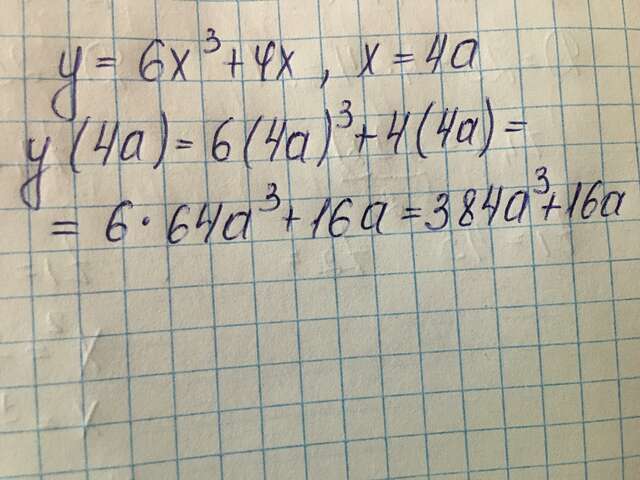 y = 6x³ + 4x , x = 4a
y (4a) = 6 (4a)³ + 4 (4a) =
= 6 · 64a³ + 16a = 384a³ + 16a